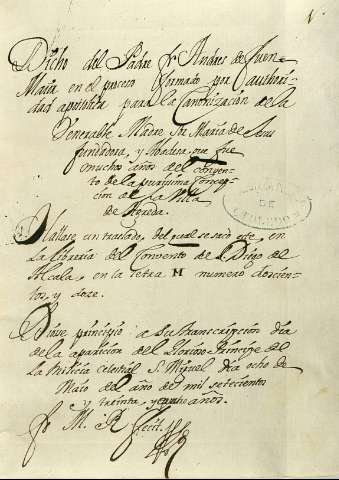 Dicho del Padre fr Andres de Fuen
Maia en el proceso formado por authori
dad apostolica para la Canonización de la
Venerable Madre Sor María de Jesus
fundadora, y Abadesa que fue
muchos años del conven
to de la purissima Concep
ción de la Villa
de Agreda.
Hallase un traslado, del qual se sacó este, en
la libreria del Convento de S. Diego de
Alcala, en la letra H numero doscien
tos, y doze.
Diose principio a su transcripción dia
de la aparicion del Glorioso Principe de
la Milicia celestial S. Miguel dia ocho de
Maio del año de mil setecientos
y treinta, y años.
fr M. R
DE